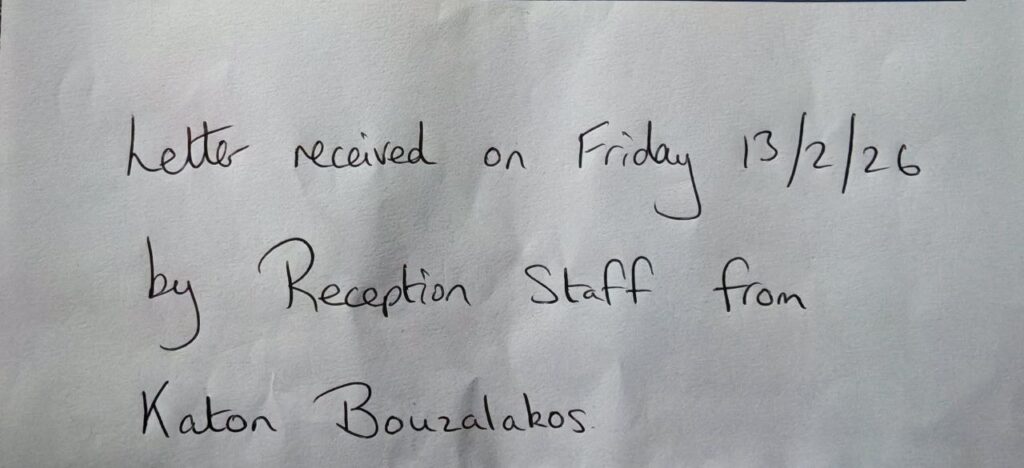 Letter received on Friday 13/2/26
by Reception Staff from
Katon Bouzalakos.